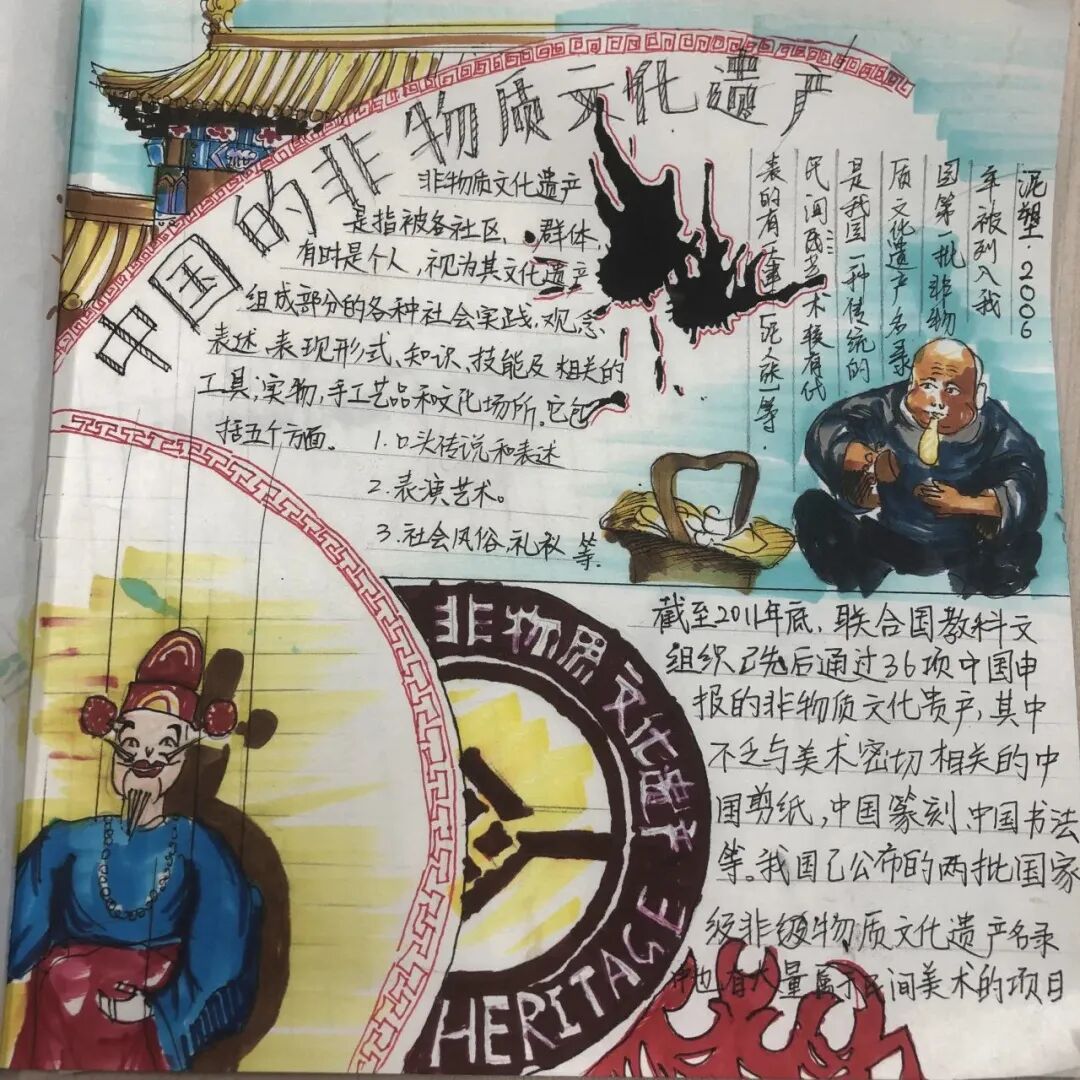 中国的非物质文化遗产
非物质文化遗产
是指被各社区、群体,
有时是个人,视为其文化遗产
组成部分的各种社会实践,观念
表述、表现形式、知识、技能及相关的
工具,实物,手工艺品和文化场所。它包
括五个方面。 1.口头传说和表述
2.表演艺术。
3.社会风俗,礼义等.
泥塑·2006
年被列入我
国第一批非物
质文化遗产名录
是我国一种传统的
民间民艺术较有代
表的有天津"泥人张"等.
非物质文化遗产
HERITAGE
截至2011年底,联合国教科文
组织已先后通过36项中国申
报的非物质文化贵产,其中
不乏与美术密切相关的中
国剪纸,中国篆刻、中国书法
等。我国已公布的两批国家
级非级物质文化遗产名录
中也有大量属于民间美术的项目